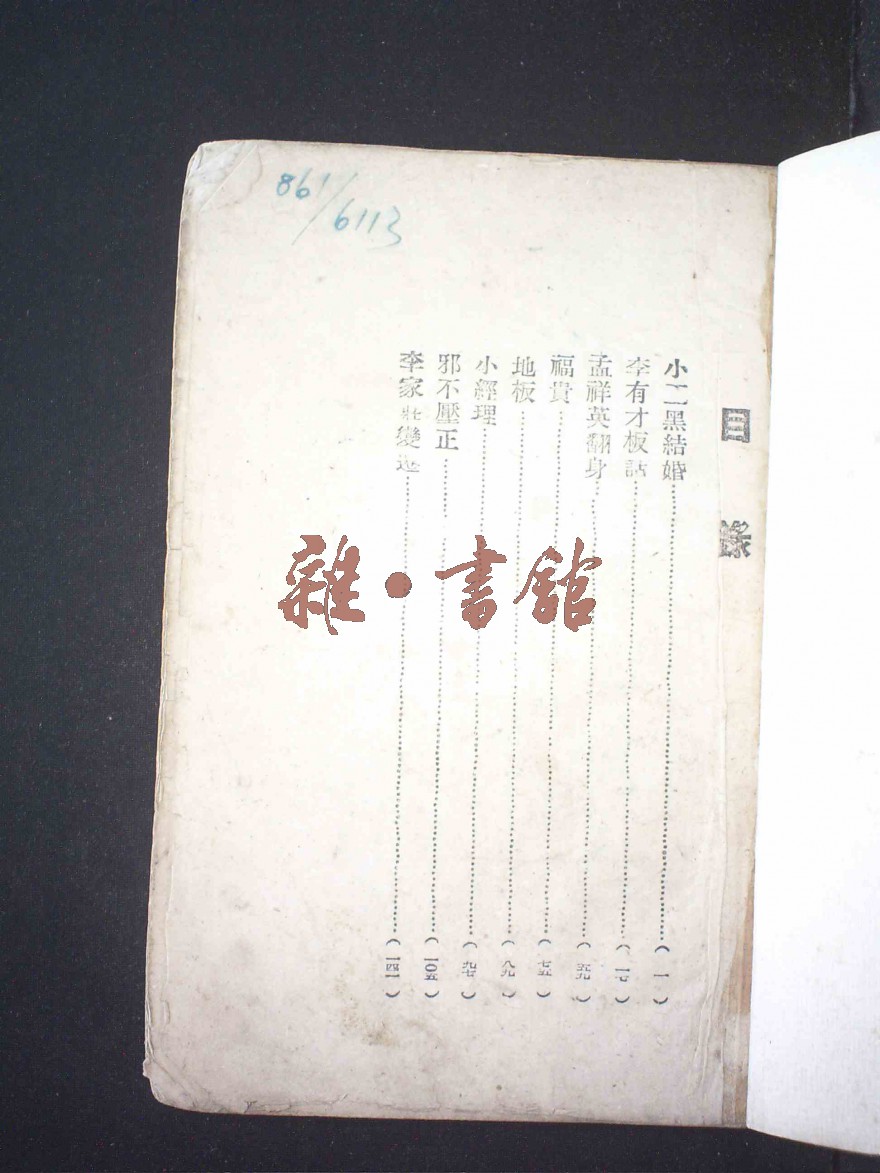 861/6113
目錄
小二黑結婚……(一)
李有才板話……(一七)
孟祥英翻身……(五九)
福貴……(七五)
地板……(八九)
小經理……(九七)
邪不壓正……(一〇五)
李家莊變遷……(一四一)
雜·書館